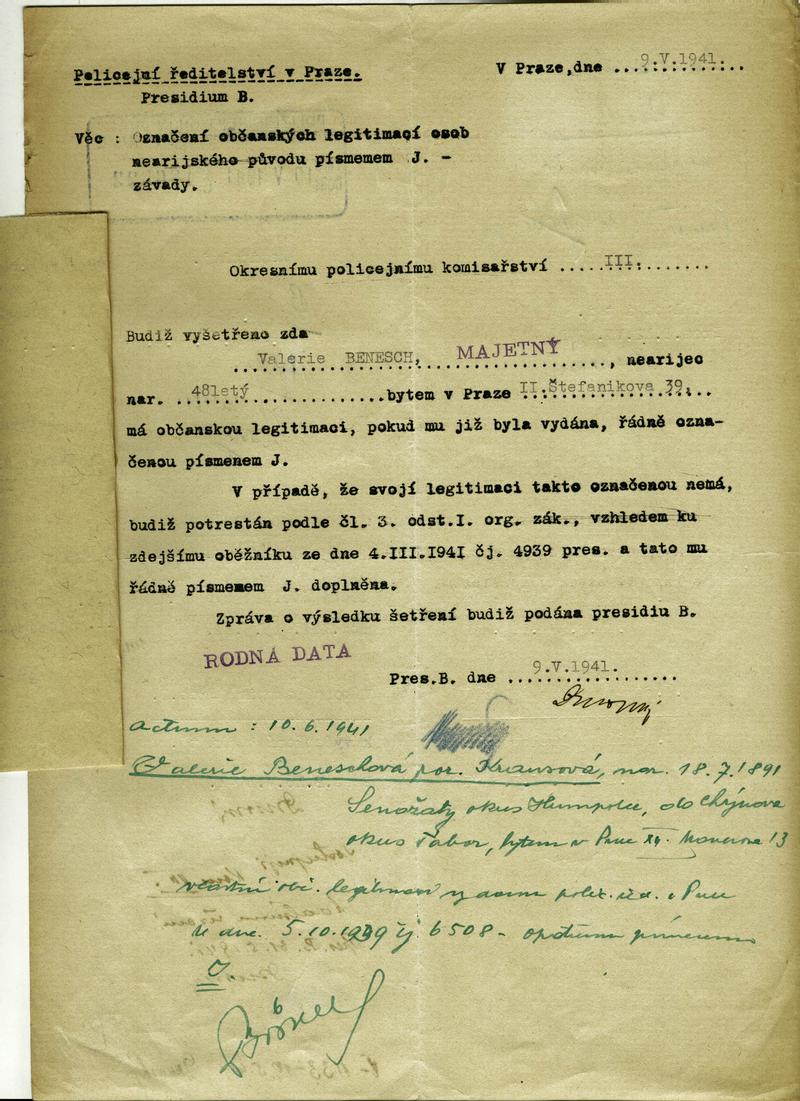 Policejní ředitelství v Praze.
V Praze,dne ...9.V.1941...
Presidium B.
Věc : Označení občanských legitimací osob
nearijského původu písmemem J. -
závady.
Okresnímu policejnímu komisařství .....III..........
Budiž vyšetřeno zda
Valerie BENESCH, MAJETNÝ ....., nearijec
nar. ..48letý................bytem v Praze II.Štefanikova 39.
má občanskou legitimaci, pokud mu již byla vydána, řádně ozna-
čenou písmenem J.
V případě, že svojí legitimaci takto označenou nemá,
budiž potrestán podle čl. 3. odst.I. org. zák., vzhledem ku
zdejšímu oběžníku ze dne 4.III.1941 čj. 4939 pres. a tato mu
řádně písmenem J. doplněna.
Zpráva o výsledku šetření budiž podána presidiu B.
RODNÁ DATA
Pres.B. dne ...9.V.1941...
Actum : 10.6.1941
Valerie Beneschová roz. Krausová, nar. 18.7.1891
Senožaty okres Humpolec, do Chýnova
okres Tábor, bytem v Praze 13
vlastní obč. legitimaci v Praze
ze dne 5.10.1939 čj. 6508 - opatřenou písmenem
J.